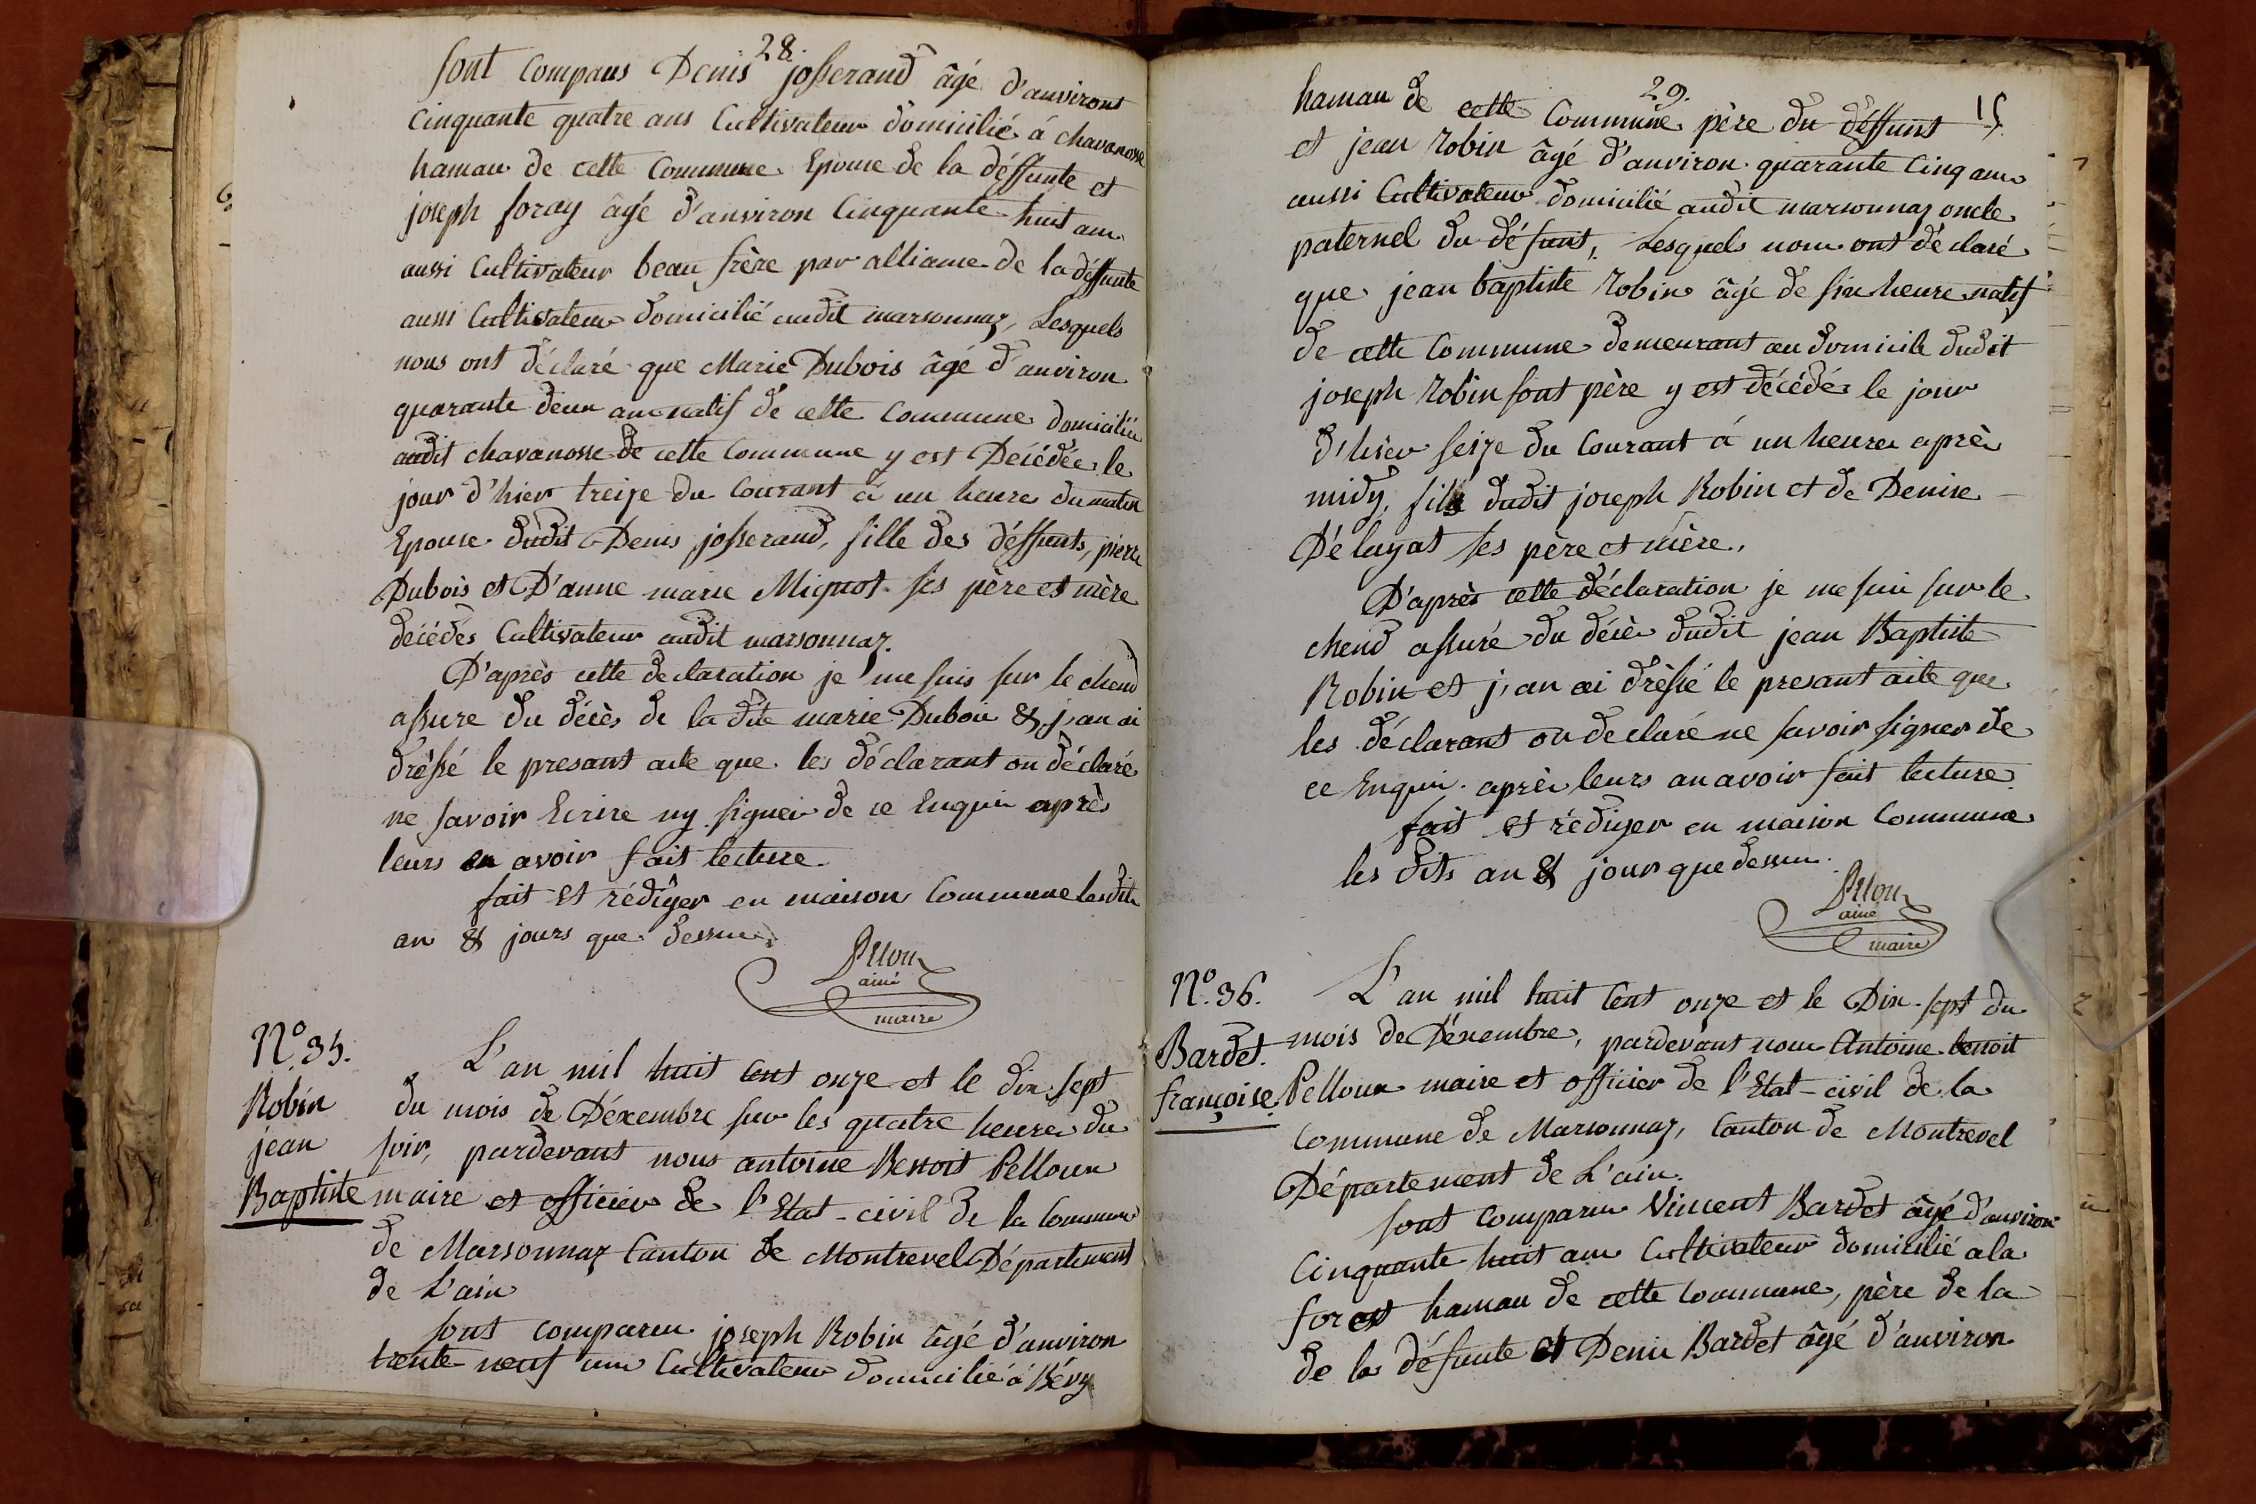 28.
sont compaus Denis josserand âgé d'auviront
cinquante quatre ans Cultivateur domicilié á chavanosse
hamau de cette Commune Epoure de la déffunte et
joseph foray âgé d'anviron Cinquante huit ans
aussi Cultivateur beau frère par alliance de la déffunte
aussi Cultivateur domicilié audit marsonnaz, Lesquels
nous ont déclaré que Marie Dubois âgé d'anviron
quarante deux ans natif de cette Commune domiciliée
audit chavanosse de cette Commune y est Décédée le
jour d'hier treize du Courant á un heure du matin
Epouse dudit Denis josserand, fille des déffunts, pierre
Dubois et D'anne marie Mignot ses père et mère
décédés Cultivateur audit marsonnaz.
D'après cette declaration je me suis sur le chend
assure du décès de la dite marie Dubois & j'an ai
drèssé le presant acte que les déclarant on déclaré
ne savoir Ecrire ny signer de ce Enquis après
leurs en avoir fait lecture.
fait et rédiger en maison Commune lesdits
an & jours que dessus.
ainé
maire
N.º 35.
Robin
jean
Baptiste
L'an mil huit cent onze et le dix sept
du mois de Décembre sur les quatre heures du
soir, pardevant nous antoine Benoit Pelloux
maire et officier de l'Etat-civil de la Commune
de Marsonnaz Canton de Montrevel Département
de L'ain
sont comparu joseph Robin âgé d'anviron
trente-neuf ans Cultivateur domicilié á Bévy
29.
15
hamau de cette Commune père du déffunt
et jean Robin âgé d'anviron quarante cinq ans
aussi Cultivateur domicilié audit marsonnaz oncle
paternel du défunt, Lesquels nous ont déclaré
que jean baptiste Robin âgé de six heure natif
de cette Commune demeurant au domicile dudit
joseph Robin sont père y est décédé le jour
d'hier seize du Courant á un heure après
midy, fils dudit joseph Robin et de Denise
Délayat ses père et mère.
D'après cette déclaration je me suis sur le
chend assuré du décès dudit jean Baptiste
Robin et j'an ai drèssé le presant acte que
les déclarant on declaré ne savoir signer de
ce Enquis après leurs an avoir fait lecture.
fait et rédiger en maison Commune
les dits an & jour que dessus.
ainé
maire
N.º 36.
Bardet
françoise
L'an mil huit Cent onze et le Dix-sept du
mois de Décembre, pardevant nous Antoine benoit
Pelloux maire et officier de l'Etat-civil de la
Commune de Marsonnaz, Canton de Montrevel
Département de L'ain.
sont comparu Vincent Bardet âgé d'anviron
Cinquante huit ans Cultivateur domicilié a la
forest hamau de cette Commune, père de la
de la défunte et Denis Bardet âgé d'anviron